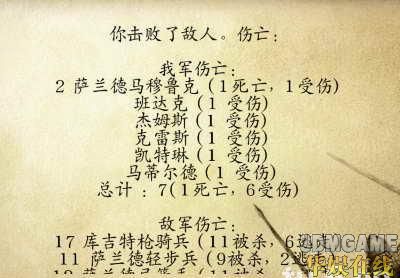 你击败了敌人。伤亡:
我军伤亡:
2 萨兰德马穆鲁克 (1死亡,1受伤)
班达克 (1 受伤)
杰姆斯 (1 受伤)
克雷斯 (1 受伤)
凯特琳 (1 受伤)
马蒂尔德 (1 受伤)
总计 : 7(1死亡,6受伤)
敌军伤亡:
17 库吉特枪骑兵 (11被杀,6
11 萨兰德轻步兵 (9被杀,2
3DMGAME
华娱在线